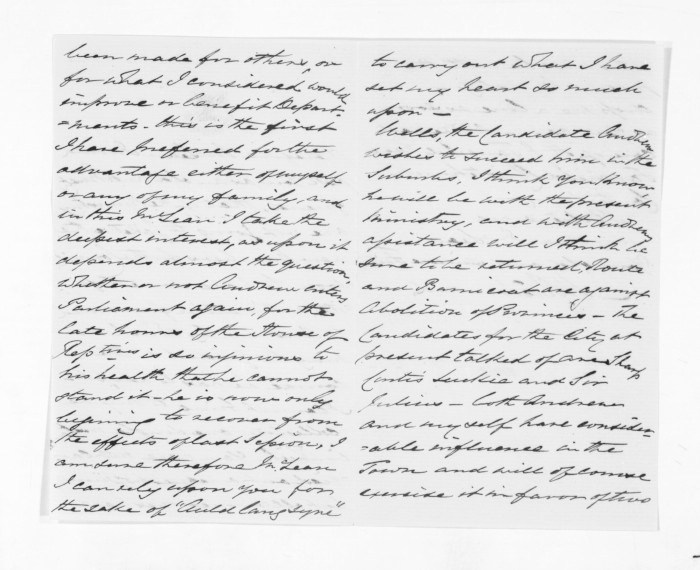 been made for others, or
for what I considered, would
improve or benefit Depart-
=ments. this is the first
I have preferred for the
advantage either of myself
or any of my family, and
in this McLean I take the
deepest interest, as upon it
depends almost the question
whether or not Andrew enters
Parliament again, for the
late hours of the House of
Reptives is so injurious to
his health that he cannot
stand it - he is now only
begining to recover from
the effects of last Session, I
am sure therefore McLean
I can rely upon you for
the sake of "Auld Lang Syne"
to carry out what I have
set my heart so much
upon -
Wells, the Candidate Andrew
wishes to succeed him in the
Suburbs, I think you know
he will be with the present
Ministry, and with Andrews
assistance will I think be
sure to be returned,
and Barncoat are against
Abolition of Provinces - The
Candidates for the City at
present talked of are Sharp
Curtis Luckie and Sir
Julius - both Andrew
and myself have consider-
=able influence in the
Town and will of course
exercise it in favor of two